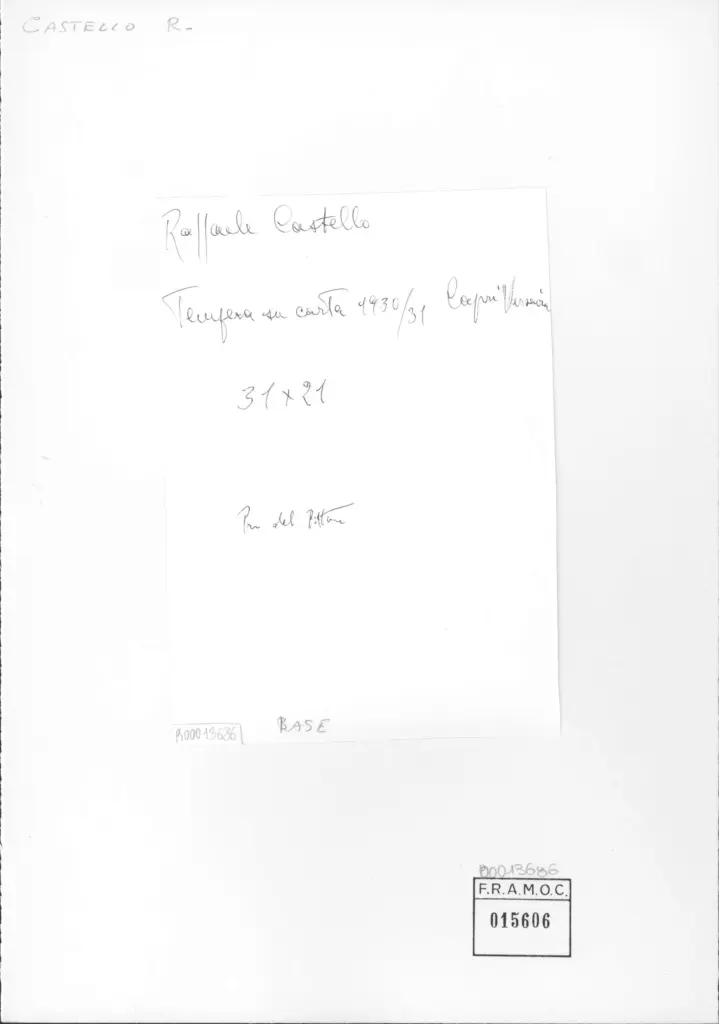 CASTELLO R.
Raffaele Castello
Tempera su carta 1930/31 Capri
31 x 21
del Pittore
BASE
B00013686
B0013686
F.R.A.M.O.C.
015606